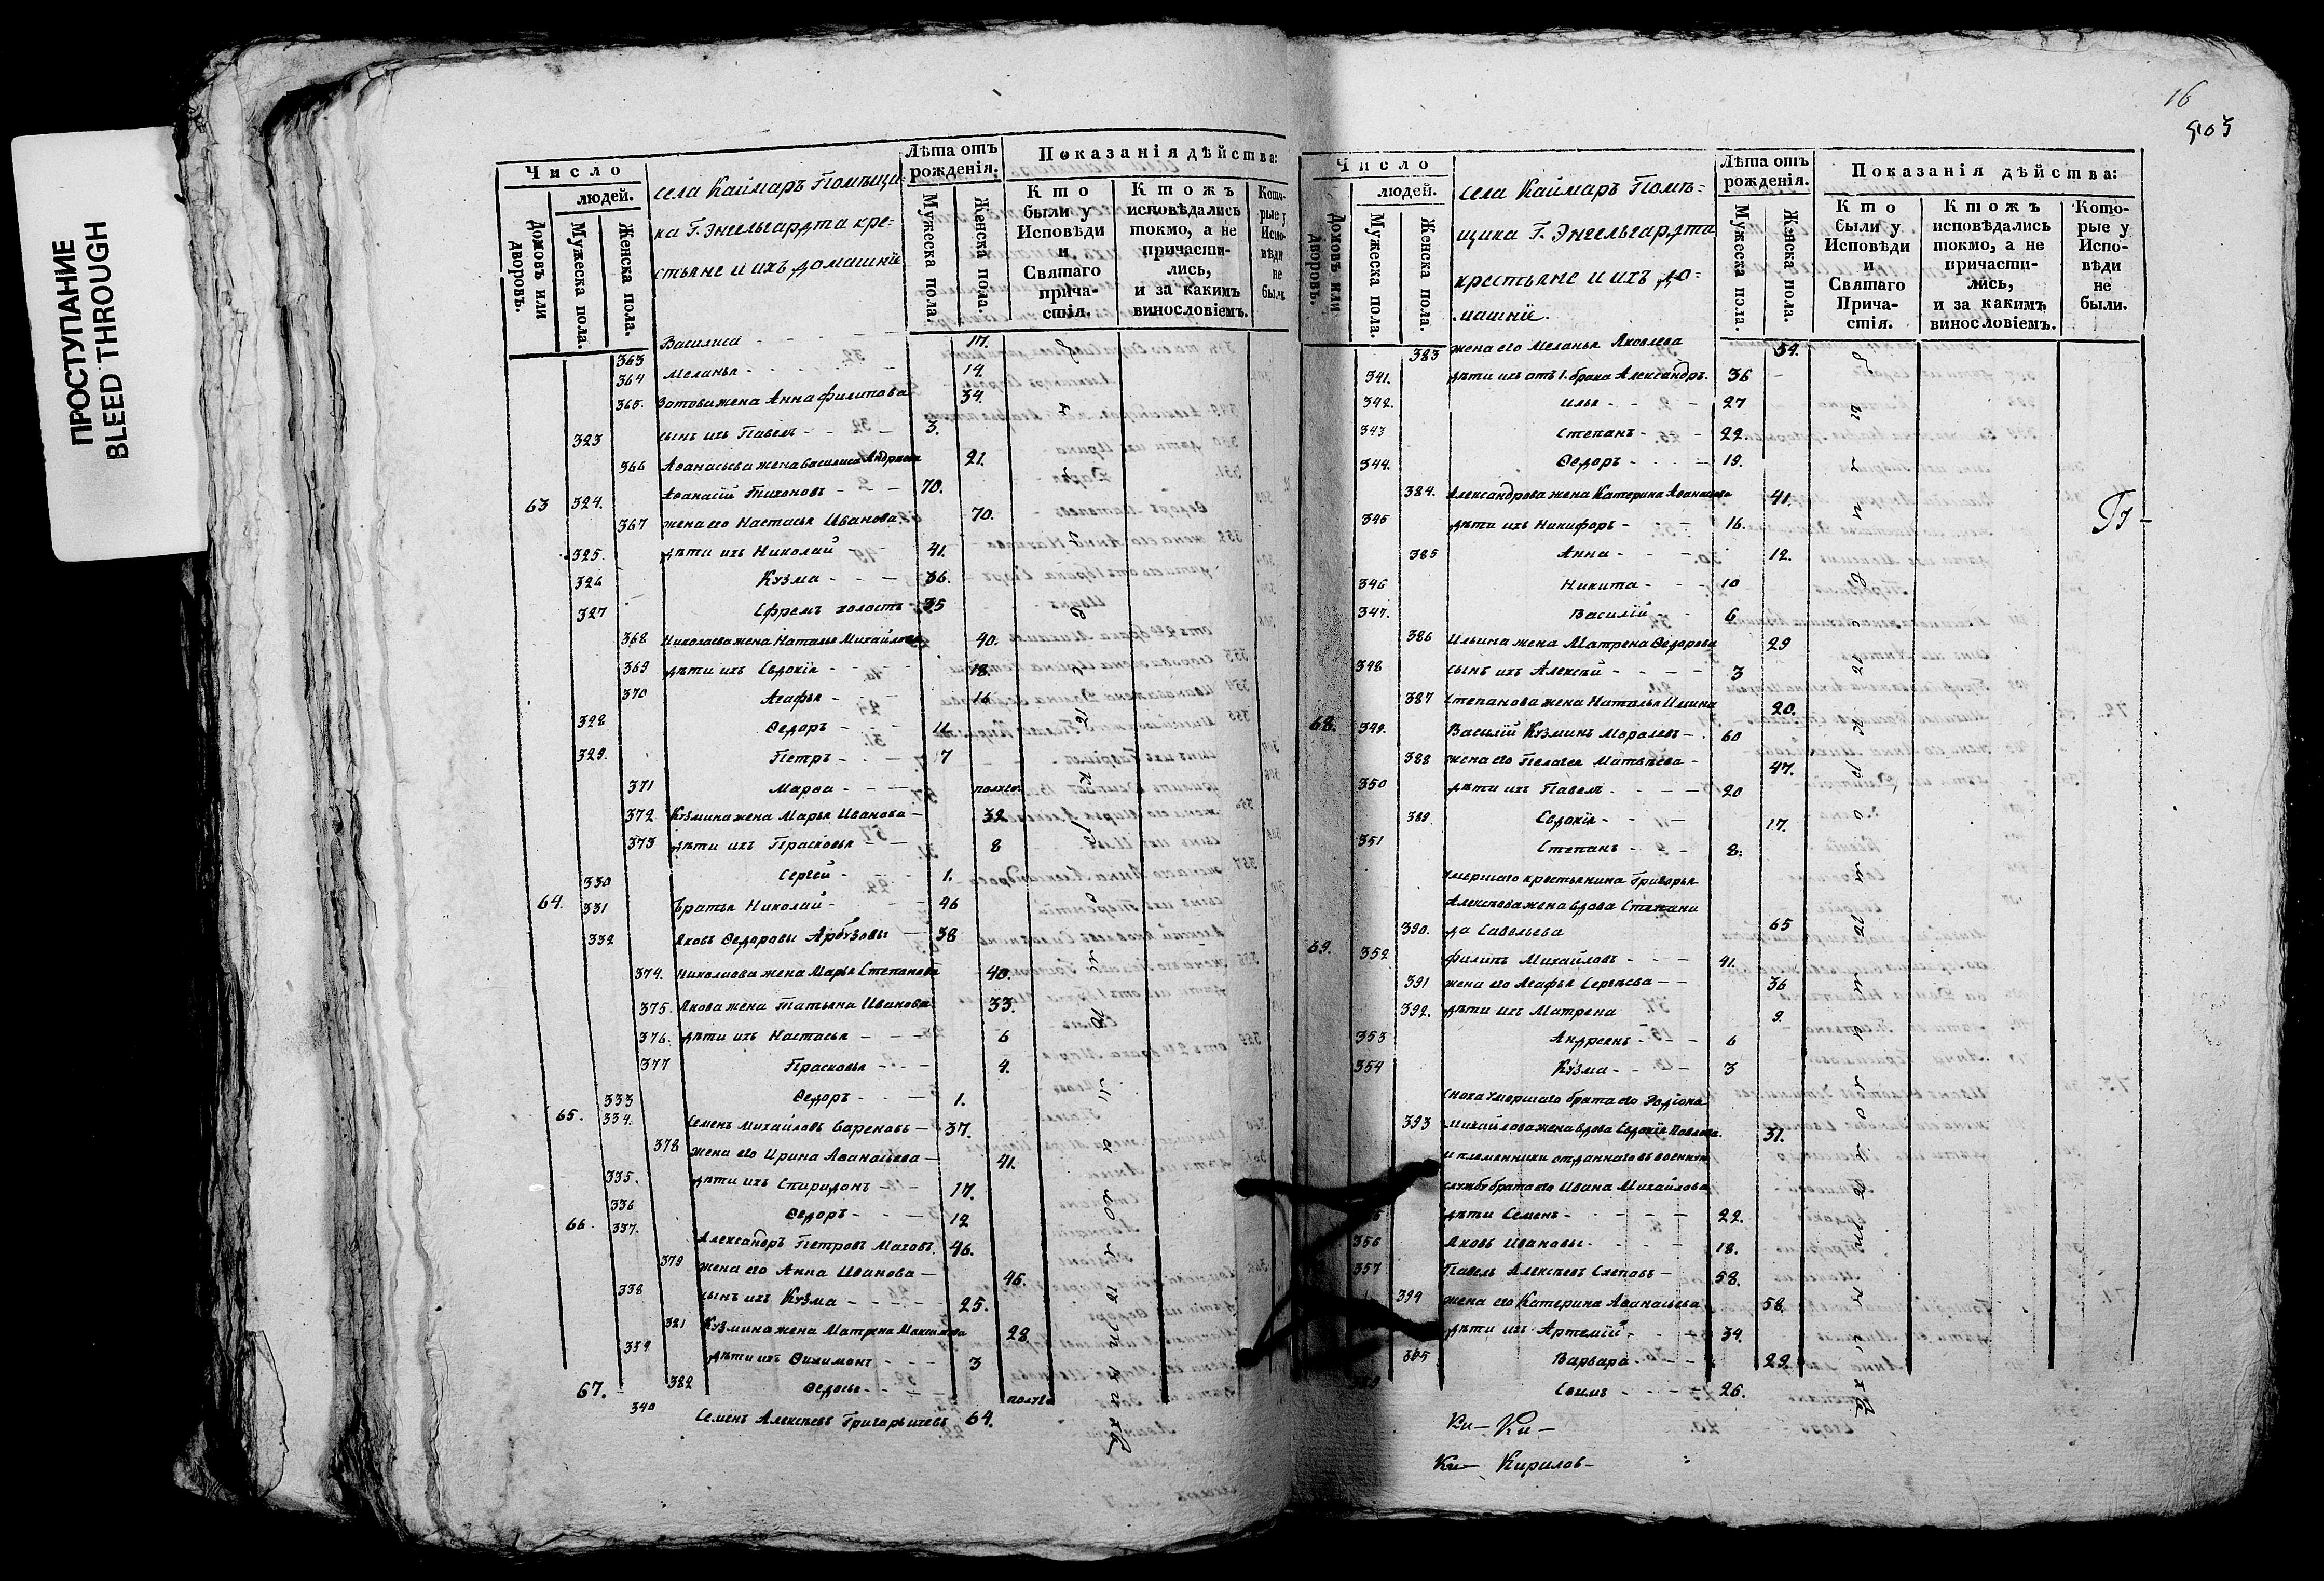 ПРОСТУПАНИЕ
BLEED THROUGH
Число
людей.
Домовъ или дворовъ.
Мужеска пола.
Женска пола.
села Каймаръ Помѣщи-
ка Г. Энгельгардта кре-
стьяне и ихъ домашніе
Лѣта отъ рожденія.
Мужеска пола.
Женска пола.
Показанія дѣйства:
Кто были у Исповѣди и Святаго прича-стія.
Ктожъ исповѣдались токмо, а не причасти-лись, и за какимъ винословіемъ.
Кото-рые у Испо-вѣди не были.
363 Василиса - 17.
364 Меланья - 14.
365. Зотова жена Анна Филипова 34.
323 сынъ ихъ Павелъ - 3.
366 Аѳанасьева жена Василиса 21.
63 324. Аѳанасій Тихоновъ - 70.
367 жена его Настасья Иванова 70.
325. дѣти ихъ Николай 41.
326 Кузма - 36.
327 Ефремъ холостъ 35
368 Николаева жена Наталья Михайлова 40.
369 дѣти ихъ Евдокія - 18.
370 Агафья - 16
328 Ѳедоръ - 11
329. Петръ - 7
371 Марѳа - полго
372 Кузмина жена Марья Иванова - 32
373 дѣти ихъ Прасковья - 8
330 Сергей - 1.
64. 331 Братья Николай - 46
332 Яковъ Ѳедоровы Арбузовы - 38
374. Николаева жена Марья Степанова 40.
375. Якова жена Татьяна Иванова 33.
376. дѣти ихъ Настасья - 6
377 Прасковья - 4.
333 Ѳедоръ - 1.
65. 334. Семенъ Михайловъ - 37.
378 жена его Ирина Аѳанасьева - 41.
335. дѣти ихъ Спиридонъ - 17.
336 Ѳедоръ - 12
66. 337. Александръ Петровъ Маховъ 46.
379 жена его Анна Иванова - 46.
338 сынъ ихъ Кузма - 25.
381 Кузмина жена Матрена Максимова 28
339 дѣти ихъ Филимонъ - 3
382 Ѳедосья - полго
67. 340 Семенъ Алексѣевъ Григорьичевъ 64.
16
903
Число
людей.
Домовъ или дворовъ.
Мужеска пола.
Женска пола.
села Каймаръ Помѣ-
щика Г. Энгельгардта
крестьяне и ихъ до-
машніе.
Лѣта отъ рожденія.
Мужеска пола.
Женска пола.
Показанія дѣйства:
Кто были у Исповѣди и Святаго Прича-стія.
Ктожъ исповѣдались токмо, а не причасти-лись, и за какимъ винословіемъ.
Кото-рые у Испо-вѣди не были.
383 жена его Меланья Яковлева 54.
341. дѣти ихъ отъ 1. брака Александръ. 36
342. Илья - 27
343 Степанъ - 22.
344. Ѳедоръ - 19.
384. Александрова жена Катерина Аѳанасьева 41.
345 дѣти ихъ Никифоръ - 16.
385 Анна - 12.
346 Никита - 10
347. Василій - 6
386 Ильина жена Матрена Ѳедорова 29
348 сынъ ихъ Алексѣй - 3
387 Степанова жена Наталья Ильина 20.
68. 349. Василій Кузминъ Моралевъ - 60
388 жена его Пелагея Матвѣева - 47.
350 дѣти ихъ Павелъ - 20
389. Евдокія - 17.
351 Степанъ - 8.
умершаго крестьянина Григорья
Алексѣева жена вдова Степани
390. да Савельева 65
69. 352 Филипъ Михайловъ - 41.
391 жена его Агафья Сергѣева - 36
392. дѣти ихъ Матрена 9.
353 Андреянъ - 6
354 Кузма - 3
сноха умершаго брата его Родіона
393 Михайлова жена вдова Евдокія Павлова. 31.
и племянники отданнаго въ военную
службу брата его Ивана Михайлова
дѣти Семенъ - 22.
356 Яковъ Ивановы - 18.
357 Павелъ Алексѣевъ Слеповъ - 58.
394 жена его Катерина Аѳанасьева 58.
дѣти ихъ Артемій - 34.
395 Варвара - 29
Евимъ - 26.
Ки- Ки-
Ки- Кирилов-